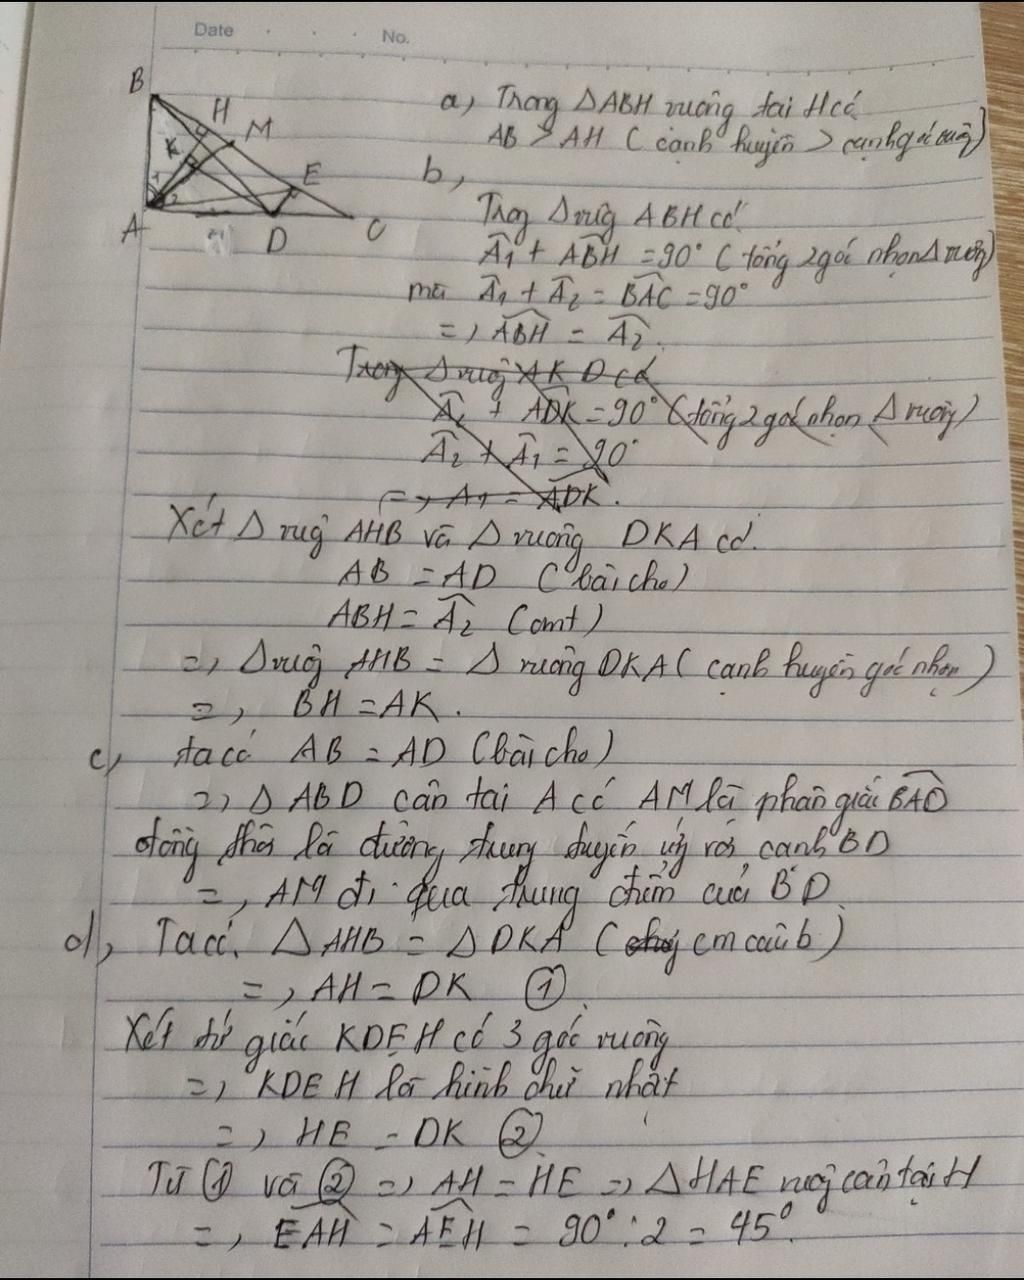 Date No.
B
H
M
K
E
1
2
A
D
C
a, Trong ΔABH vuông tại H có
AB > AH ( cạnh huyền > cạnh góc vuông)
b,
Trog Δ vuôg ABH có
Â1 + ABH = 90° ( tổng 2 góc nhọn Δ vuông)
mà Â1 + Â2 = BAC = 90°
=, ABH = Â2.
Trong Δ vuôg AKD có
Â2 + ADK = 90° ( tổng 2 góc nhọn Δ vuông)
Â2 + Â1 = 90°
=, A1 = ADK.
Xét Δ vug AHB và Δ vuông DKA có.
AB = AD ( bài cho)
ABH = Â2 (cmt)
=, Δ vuôg AHB = Δ vuông DKA ( cạnh huyền góc nhọn )
=, BH = AK.
c, ta có AB = AD (bài cho)
=, Δ ABD cân tại A có AM là phân giác BAD
đồng thời là đường trung tuyến ứg với cạnh BD
=, AM đi qua trung điểm của BD
d, Ta có. Δ AHB = Δ DKA ( cm câu b )
=, AH = DK ①.
Xét tứ giác KDEH có 3 góc vuông
=, KDEH là hình chữ nhật
=, HE = DK ②
Từ ① và ② =, AH = HE =, Δ HAE vuôg cân tại H
=, EAH = AEH = 90° : 2 = 45°.